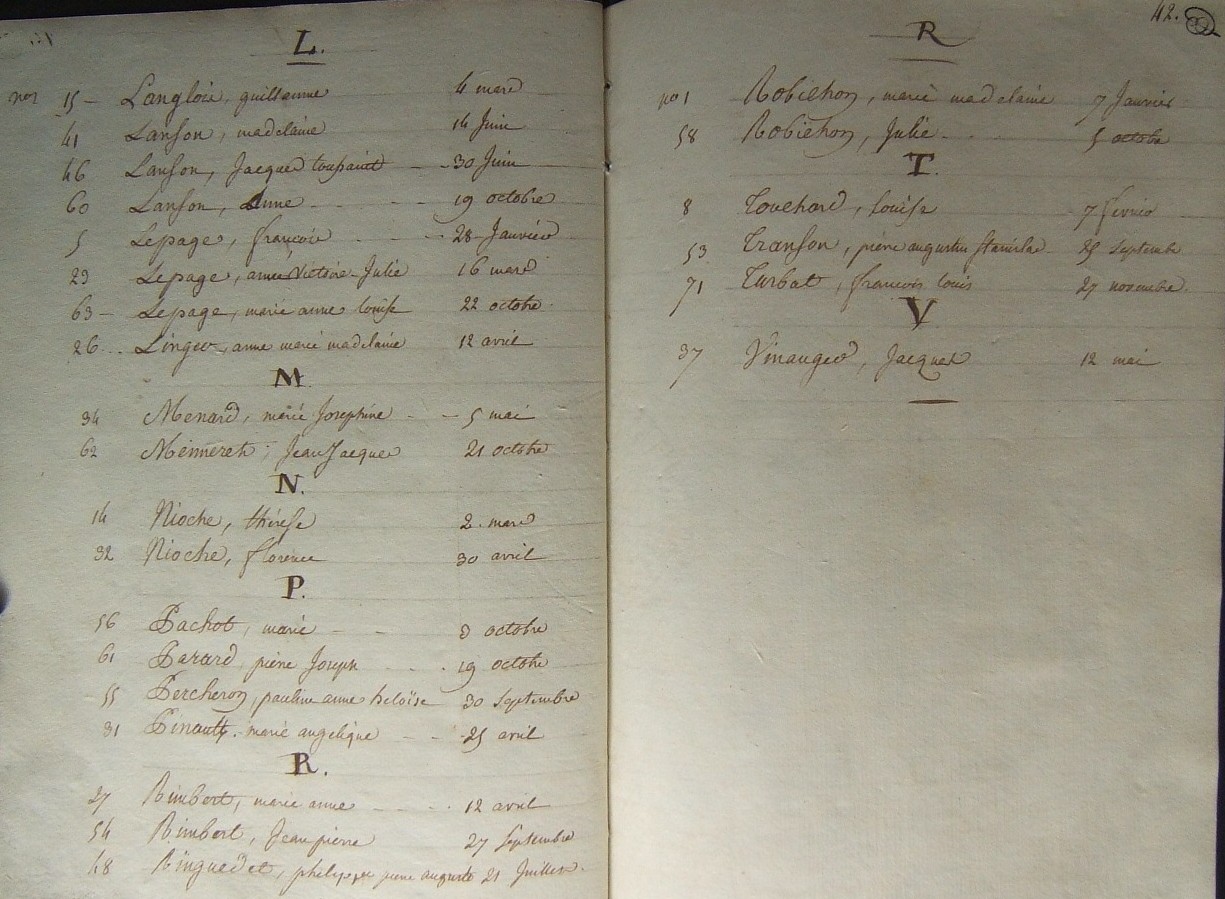 L.
nos 15 - Langlois, guillaume 4 mars
41 Lanson, madelaine 14 Juin
46 Lanson, Jacques toussaint - - 30 Juin
60 Lanson, Anne - - - 19 octobre
5 Lepage, françois - - 28 Janvier
23 Lepage, anne Victoire Julie 16 mars
63 - Lepage, marie anne louise 22 octobre
26 .. Linger, anne marie madelaine 12 avril
M.
34 Menard, marie Josephine - - 5 mai
62 Menneret, Jean Jacques 21 octobre
N.
14 Nioche, thérese 2 mars
32 Nioche, florence 30 avril
P.
56 Pachot, marie - - 8 octobre
61 Parard, pierre Joseph - - . 19 octobre
55 Percheron, pauline anne heloïse 30 septembre
31 Pinault, marie angelique - - 25 avril
R.
27 Rimbert, marie anne - - - . 12 avril
54 Rimbert, Jean pierre 27 Septembre
48 Ringuedet, philippe pierre auguste 21 Juillet.
42.
R
no 1 Robichon, marie madelaine 7 Janvier
58 Robichon, Julie - . . 5 octobre
T.
8 Touchard, louise 7 fevrier
53 Transon, pierre augustin stanislas 25 septembre
71 Turbat, françois louis 27 novembre.
V
37 Vinauger, Jacques 12 mai